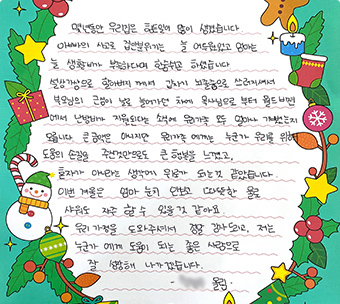 몇년동안 우리집은 힘든일이 많이 생겼습니다
아빠의 사고로 집안분위기는 늘 어두워있고 엄마는
늘 생활비가 부족하다며 힘들어 하셨습니다
설상가상으로 할아버지 께서 갑자기 뇌출혈으로 쓰러지셔서
부모님의 근심이 날로 늘어가던 차에 목사님으로 부터 월드비전
에서 난방비가 지원된다는 소식에 우리가족 모두 얼마나 기뻤는지
모릅니다 큰 금액은 아니지만 우리가족 에게는 누군가 우리를 위해
도움의 손길을 주셨것만으로도 큰 행복을 느꼈고,
혼자가 아니라는 생각에 위로가 되는 것 같았습니다.
이번 겨울은 엄마 눈치 안보고 따뜻한 물로
샤워도 자주 할 수 있을것 같아요
우리 가정을 도와주셔서 정말 감사드리고, 저는
누군가 에게 도움이 되는 좋은 사람으로
잘 성장해 나가겠습니다.
올림